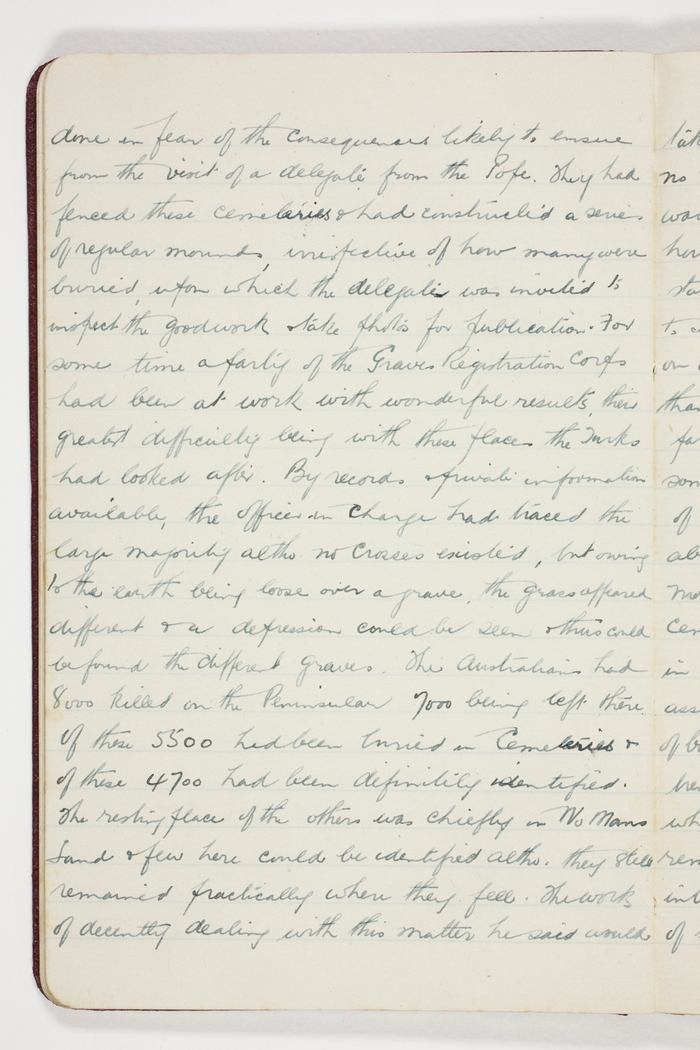 done in fear of the consequences likely to ensue
from the visit of a delegate from the Pope. They had
fenced these cemeteries & had constructed a series
of regular mounds, irrespective of how many were
buried, upon which the delegate was invited to
inspect the good work & take photos for publication. For
some time a party of the Graves Registration Corps
had been at work with wonderful results, their
greatest difficulty being with these places the Turks
had looked after. By records & private information
available, the officer in charge had traced the
large majority altho no crosses existed, but owing
to the earth being loose over a grave, the grass appeared
different & a depression could be seen & thus could
be found the different graves. The Australians had
8000 killed on the Peninsular 7000 being left there.
Of these 5500 had been buried in Cemeteries &
of these 4700 had been definitily identified.
The resting place of the others was chiefly in No Mans
Land & few here could be identified altho. they still
remained practically where they fell. The work
of decently dealing with this matter he said would
no
than
in
of